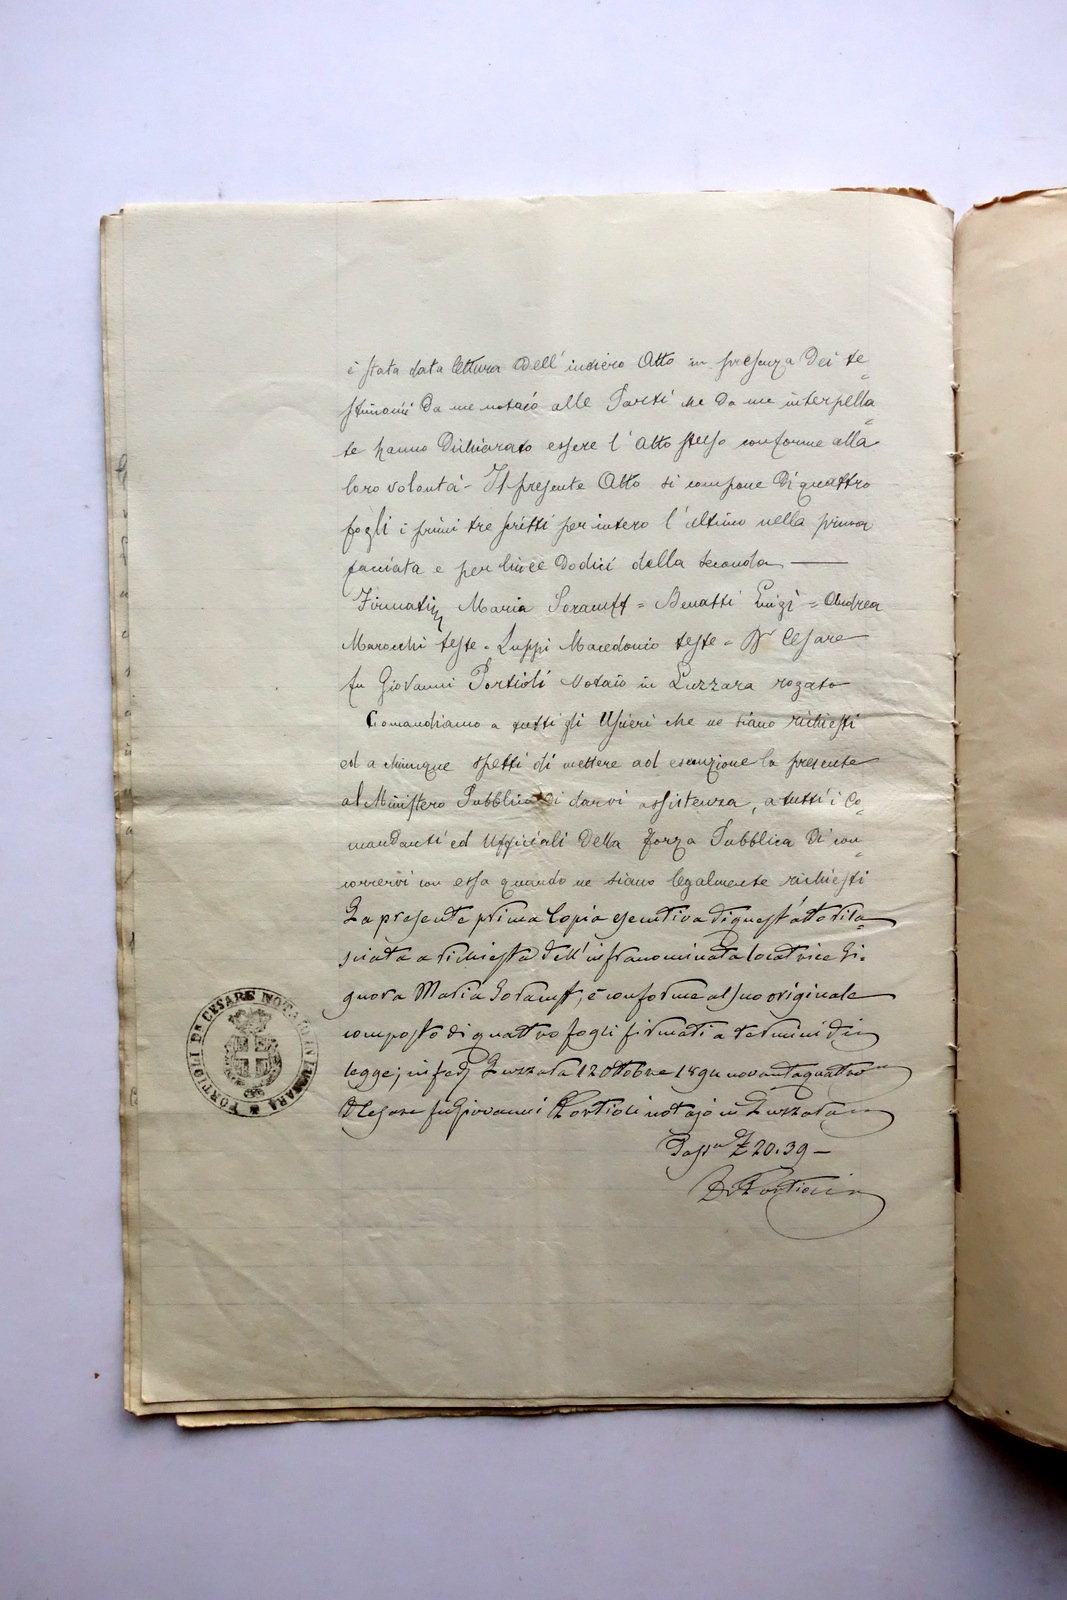 è stata data lettura dell' intiero Atto in presenza dei te=
stimoni da me notaio alle Parti che da me interpella=
te hanno dichiarato essere l' Atto stesso conforme alla
loro volontà - Il presente Atto si compone di quattro
fogli i primi tre scritti per intero l'ultimo nella prima
facciata e per linee dodici della seconda —
Firmati Maria = Benatti Luigi = Andrea
Marocchi teste = Luppi Macedonio teste = Dr Cesare
fu Giovanni Portioli Notaio in Luzzara rogato
Comandiamo a tutti gli Uscieri che ne siano richiesti
ed a chiunque spetti di mettere ad esecuzione la presente
al Ministero Pubblico di darvi assistenza, a tutti i Co=
mandanti ed Ufficiali della forza Pubblica di con=
corrervi con essa quando ne siano legalmente richiesti
La presente prima Copia esecutiva di quest'atto rila=
sciata a richiesta dell'infranominata locatrice Si=
gnora Maria, è conforme al suo originale
composto di quattro fogli firmati a termini di
legge; in fede Luzzara 12 Ottobre 1894 novantaquattro
D Cesare fu Giovanni Portioli notajo in Luzzara
£ 20.39 —
Dr Portioli
PORTIOLI Dr CESARE NOTAIO IN LUZZARA